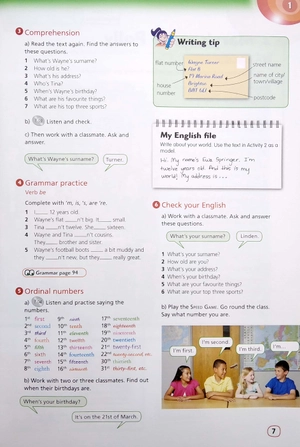 1
3 Comprehension
a) Read the text again. Find the answers to
these questions.
1 What's Wayne's surname?
2 How old is he?
3 What's his address?
4 Who's Tina?
5 When's Wayne's birthday?
6 What are his favourite things?
7 What are his top three sports?
b) Listen and check.
c) Then work with a classmate. Ask and
answer.
What's Wayne's surname?
Turner.
4 Grammar practice
Verb be
Complete with 'm, is, 's, are, 're.
1 I 12 years old.
2 Wayne's flat n't big. It small.
3 Tina n't twelve. She sixteen.
4 Wayne and Tina n't cousins.
They brother and sister.
5 Wayne's football boots a bit muddy and
they n't new, but they really great.
Grammar page 94
5 Ordinal numbers
a) Listen and practise saying the
numbers.
1st first
2nd second
3rd third
4th fourth
5th fifth
6th sixth
7th seventh
8th eighth
9th ninth
10th tenth
11th eleventh
12th twelfth
13th thirteenth
14th fourteenth
15th fifteenth
16th sixteenth
17th seventeenth
18th eighteenth
19th nineteenth
20th twentieth
21st twenty-first
22nd twenty-second etc.
30th thirtieth
31st thirty-first, etc.
b) Work with two or three classmates. Find out
when their birthdays are.
When's your birthday?
It's on the 21st of March.
Writing tip
flat number
house
number
Wayne Turner
Flat B
Brighton
street name
name of city/
town/village
postcode
My English file
Write about your world. Use the text in Activity 2 as a
model.
Hi. My name's Springer. I'm
twelve years old. And this is my
world! My address is...
6 Check your English
a) Work with a classmate. Ask and answer these
questions.
What's your surname?
Linden.
1 What's your surname?
2 How old are you?
3 What's your address?
4 When's your birthday?
5 What are your favourite things?
6 What are your top three sports?
b) Play the SPEED GAME. Go round the class.
Say what number you are.
I'm first.
I'm second.
I'm third.
I'm...
7